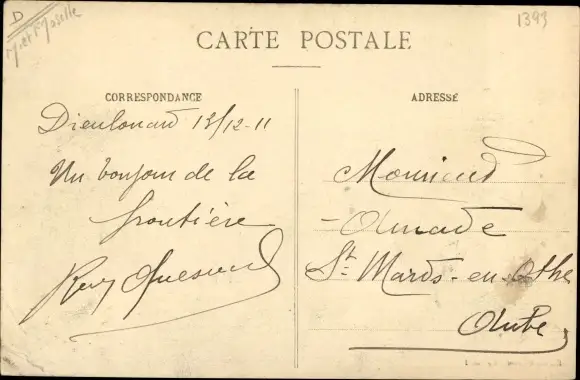 D
M.et Moselle
1393
CARTE POSTALE
CORRESPONDANCE
Dieulouard 13/12-11
Un bonjour de la
frontière
ADRESSE
Monsieur
St Mards-en-Othe
Aube